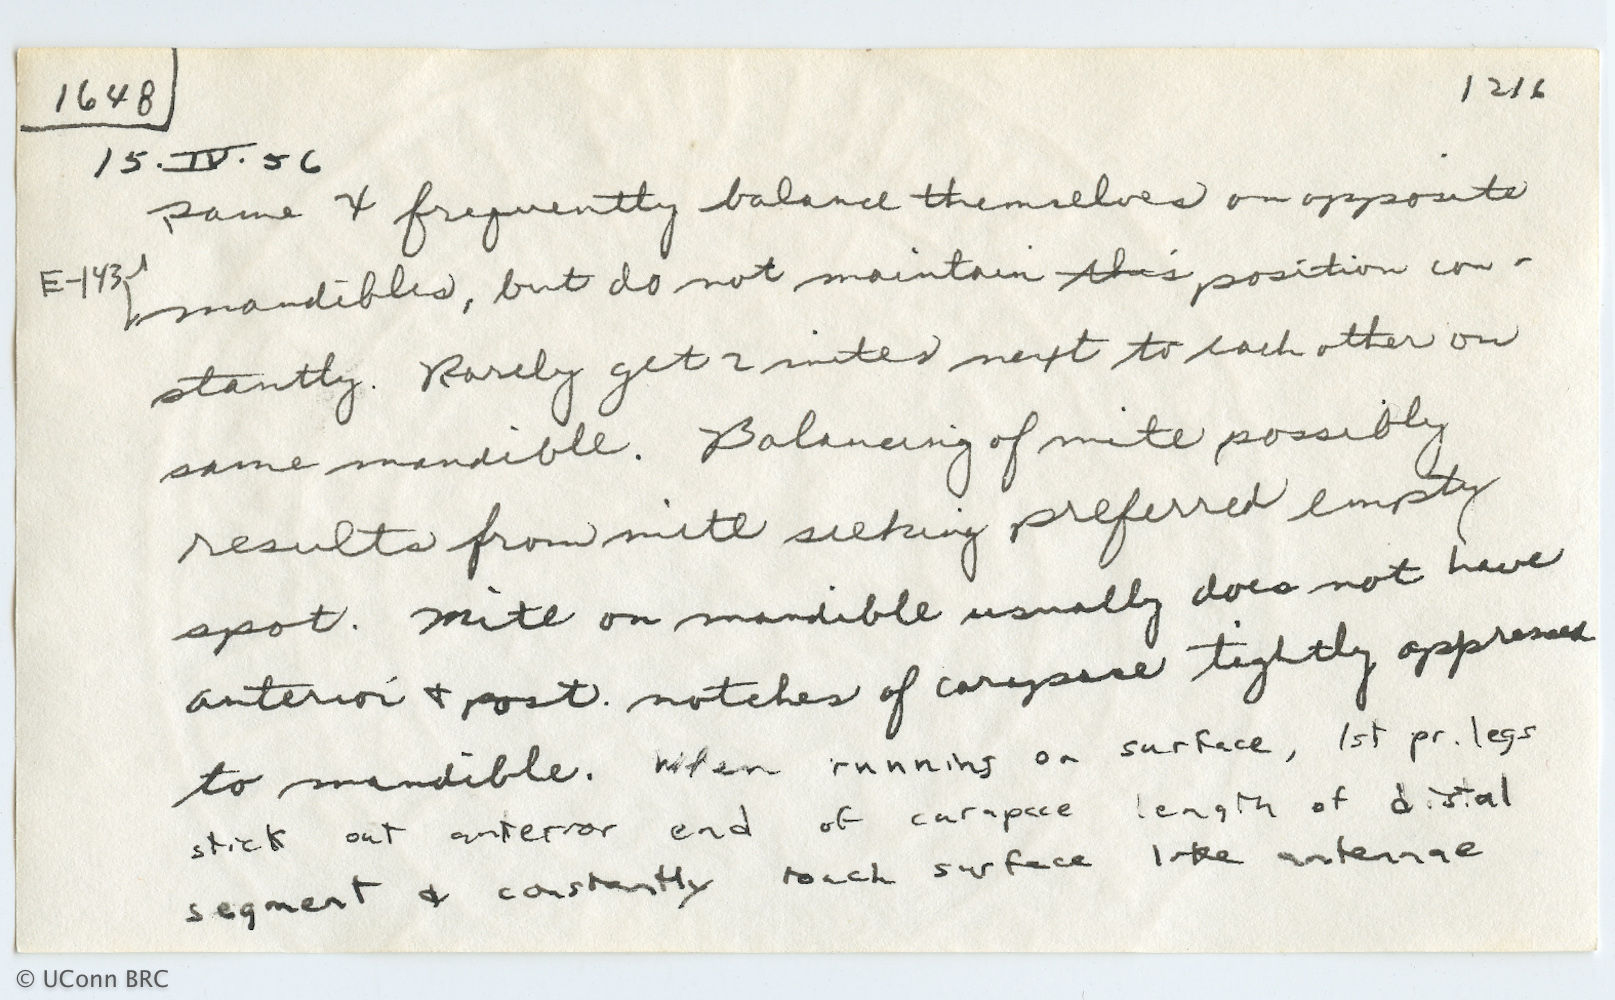 1648
1216
15.IV.56
same & frequently balance themselves on opposite
E-143
mandibles, but do not maintain this position con-
stantly. Rarely get 2 mites next to each other on
same mandible. Balancing of mite possibly
results from mite seeking preferred empty
spot. Mite on mandible usually does not have
anterior & post. notches of carapace tightly appressed
to mandible. When running on surface, 1st pr. legs
stick out anterior end of carapace length of distal
segment & constantly touch surface like antennae
© UConn BRC